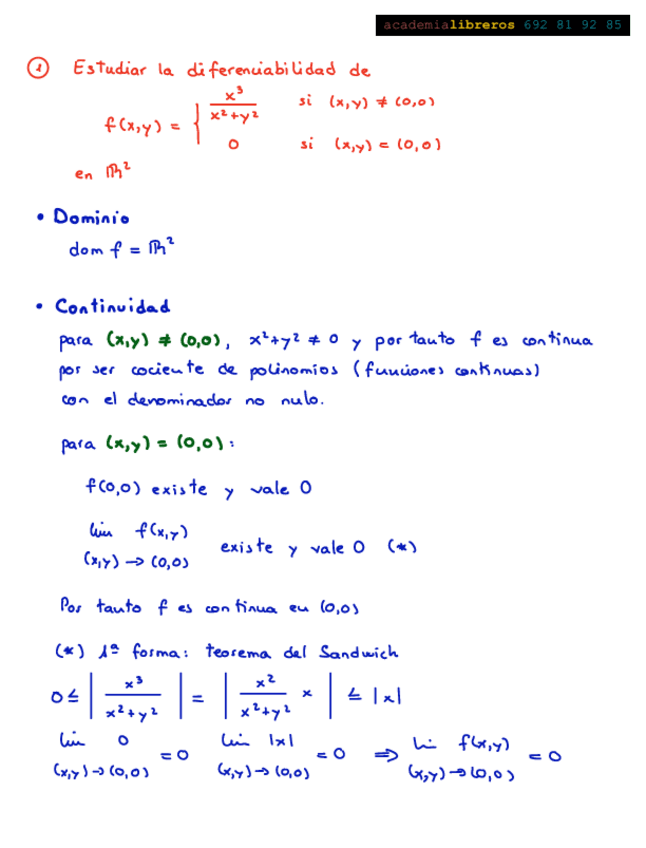 academialibreros 692 81 92 85
① Estudiar la diferenciabilidad de
f(x,y) = { x³/(x²+y²) si (x,y) ≠ (0,0)
0 si (x,y) = (0,0)
en ℝ²
• Dominio
dom f = ℝ²
• Continuidad
para (x,y) ≠ (0,0), x²+y² ≠ 0 y por tanto f es continua
por ser cociente de polinomios (funciones continuas)
con el denominador no nulo.
para (x,y) = (0,0):
f(0,0) existe y vale 0
lim f(x,y)
(x,y) → (0,0) existe y vale 0 (*)
Por tanto f es continua en (0,0)
(*) 1ª forma: teorema del Sandwich
0 ≤ | x³/(x²+y²) | = | x²/(x²+y²) x | ≤ |x|
lim 0 = 0 lim |x| = 0 ⇒ lim f(x,y) = 0
(x,y)→(0,0) (x,y)→(0,0) (x,y)→(0,0)